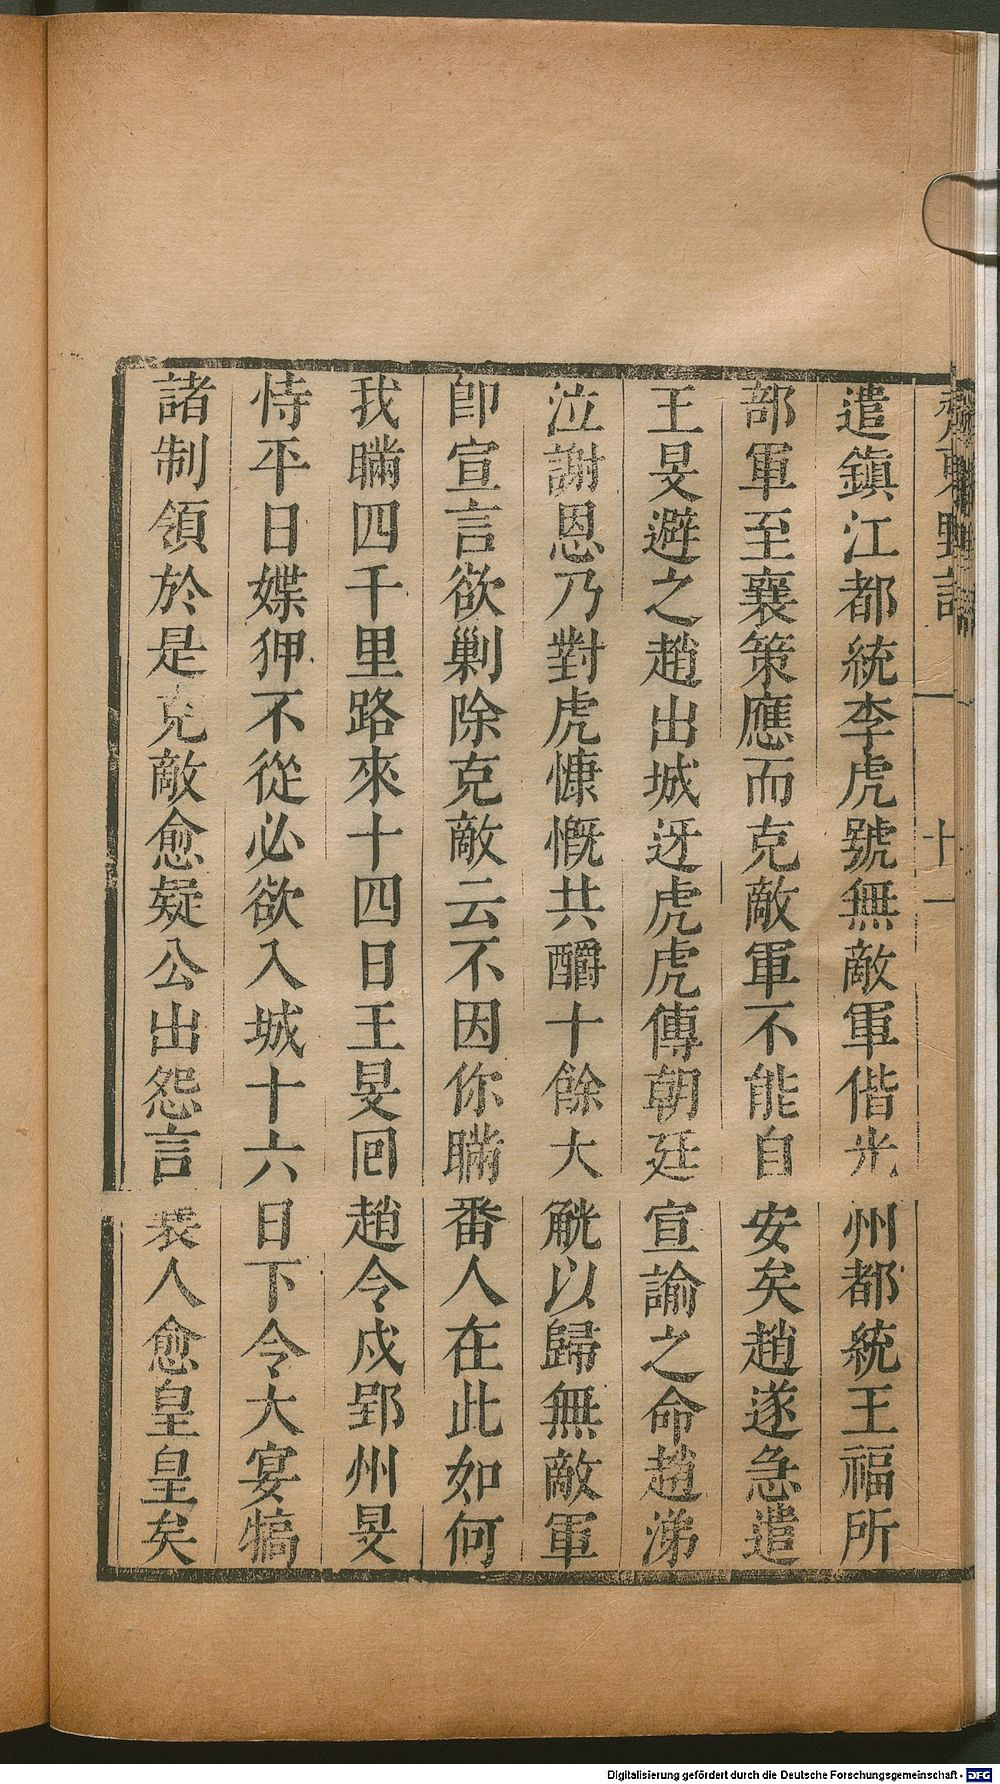 齊東野語 十一
遣鎭江都統李虎號無敵軍偕光州都統王福所
部軍至襄策應而克敵軍不能自安矣趙遂急遣
王旻避之趙出城迓虎虎傳朝廷宣諭之命趙涕
泣謝恩乃對虎慷慨共釂十餘大觥以歸無敵軍
卽宣言欲剿除克敵云不因你瞞番人在此如何
我瞞四千里路來十四日王旻囘趙令戍郢州旻
恃平日媟狎不從必欲入城十六日下令大宴犒
諸制領於是克敵愈疑公出怨言裴人愈皇皇矣
Digitalisierung gefördert durch die Deutsche Forschungsgemeinschaft - DFG